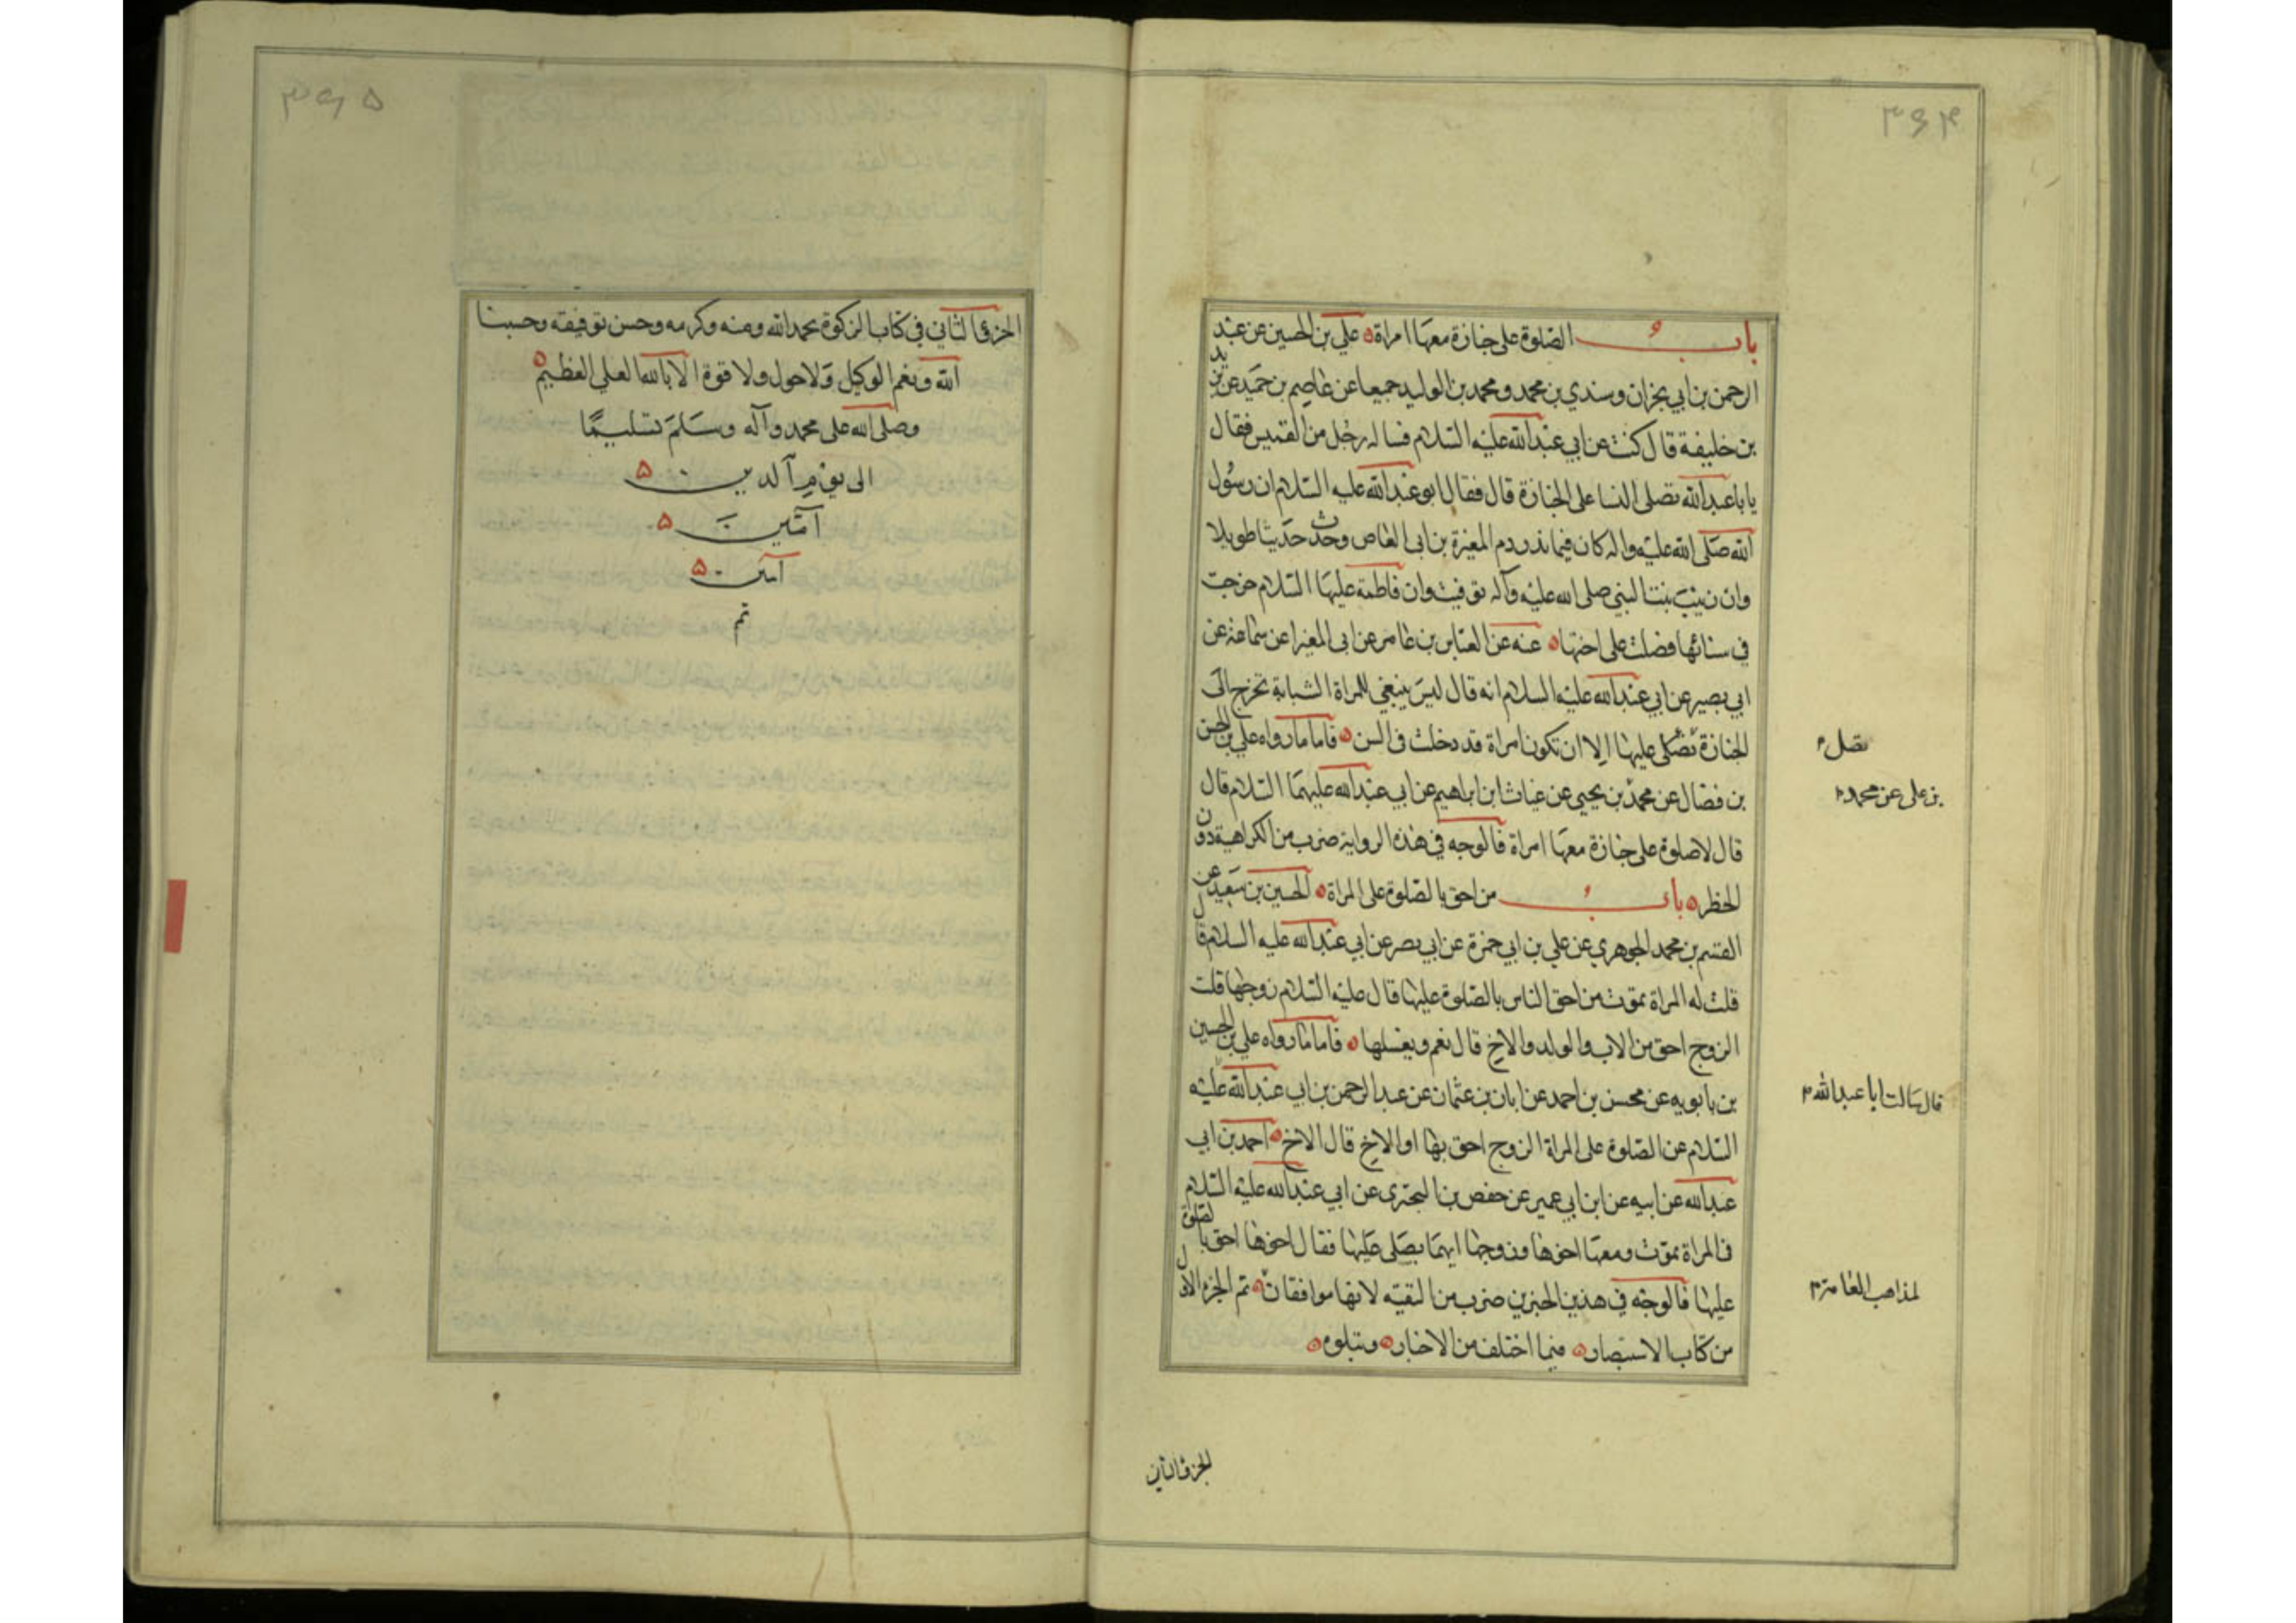 ٣٩٤
باب الصلوة على جنازة معها امراة علي بن الحسين عن عبد
الرحمن بن ابي نجران وسندي بن محمد ومحمد بن الوليد جميعا عن عاصم بن حميد عن يزيد
بن خليفة قال كنت عن ابي عبد الله عليه السلام فساله رجل من القميين فقال
يابا عبد الله تصلى النسا على الجنازة قال فقال ابو عبد الله عليه السلام ان رسول
الله صلى الله عليه واله كان فيما نذر دم المغيرة بن ابي العاص وحدث حديثا طويلا
وان زينب بنت النبي صلى الله عليه وآله توفيت وان فاطمة عليها السلام خرجت
في سنائها فصلت على اختها عنه عن العباس بن عامر عن ابي المغيرا عن سماعة عن
ابي بصير عن ابي عبد الله عليه السلام انه قال ليس ينبغي للمراة الشبابة تخرج الى
الجنازة تصلى عليها الا ان تكون امراة قد دخلت في السن فاما مارواه علي بن الحسن
بن فضال عن محمد بن يحيى عن غياث ابن ابراهيم عن ابي عبد الله عليهما السلام قال
قال لاصلوة على جنازة معها امراة فالوجه في هذه الرواية ضرب من الكراهية دون
الحظر باب من احق بالصلوة على المراة الحسين بن سعيد عن
القسم بن محمد الجوهري عن علي بن ابي حمزة عن ابي بصير عن ابي عبد الله عليه السلام قال
قلت له المراة تموت من احق الناس بالصلوة عليها قال عليه السلام زوجها قلت
الزوج احق من الاب والولد والاخ قال نعم ويغسلها فاما مارواه علي بن الحسين
بن بابويه عن محسن بن احمد عن ابان بن عثمان عن عبد الرحمن بن ابي عبد الله عليه
السلام عن الصلوة على المراة الزوج احق بها او الاخ قال الاخ احمد بن ابي
عبد الله عن ابيه عن ابن ابي عمير عن حفص بن البختري عن ابي عبد الله عليه السلام
في المراة تموت ومعها اخوها وزوجها ايهما يصلى عليها فقال اخوها احق بالصلوة
عليها فالوجه في هذين الخبرين ضرب من التقية لانها موافقان تم الجزء الاول
من كتاب الاستبصار فيما اختلف من الاخبار ويتلوه
بن على عن محمد
قال سالت ابا عبد الله
لمذاهب العامة
الجزء الثاني
٣٩٥
الجزء الثاني في كتاب الزكوة بحمد الله ومنه وكرمه وحسن توفيقه وحسبنا
الله ونعم الوكيل ولاحول ولا قوة الا بالله العلي العظيم
وصلى الله على محمد وآله وسلم تسليمًا
الى يوم الدين
آمين
امين
تم